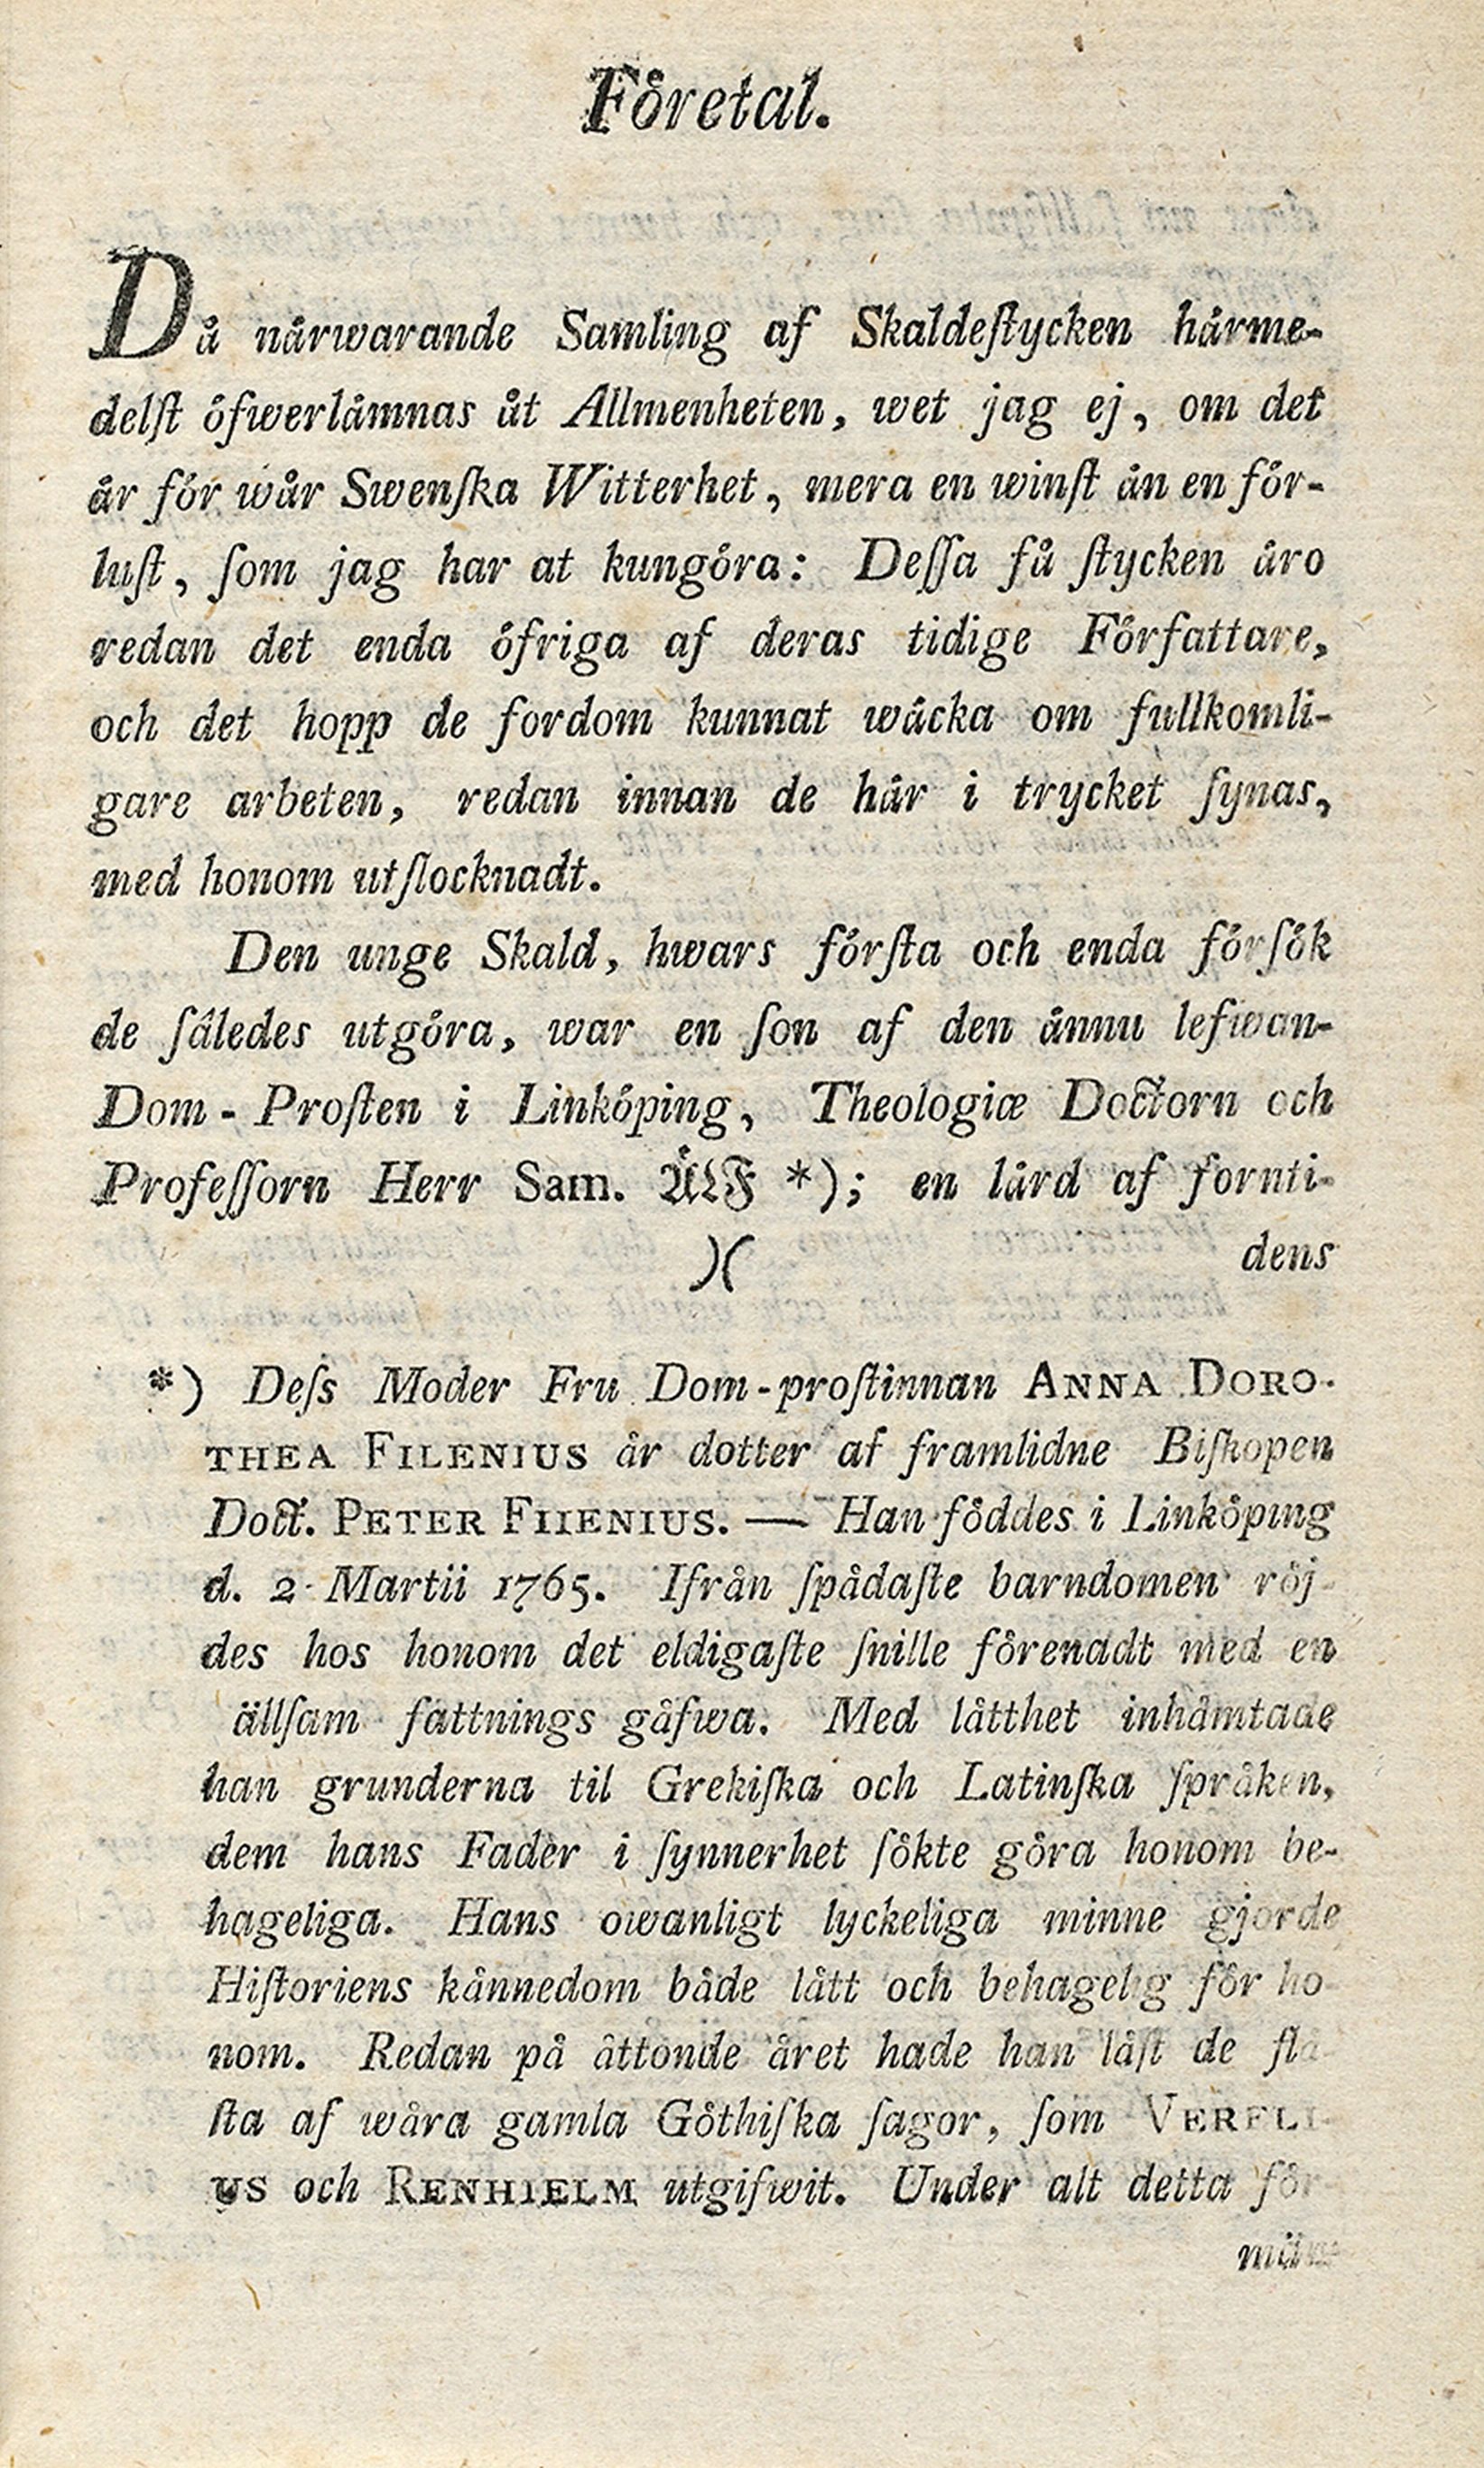 Företal.
Då närwarande Samling af Skaldeſtycken härme-
delſt öfwerlämnas åt Allmenheten, wet jag ej, om det
är för wår Swenſka Witterhet, mera en winſt än en för-
luſt, ſom jag har at kungöra: Deſſa få ſtycken äro
redan det enda öfriga af deras tidige Författare,
och det hopp de fordom kunnat wäcka om fullkomli-
gare arbeten, redan innan de här i trycket ſynas,
med honom utſlocknadt.
Den unge Skald, hwars förſta och enda förſök
de ſåledes utgöra, war en ſon af den ännu lefwan-
Dom-Proſten i Linköping, Theologiæ Doctorn och
Profeſſorn Herr Sam. ÄLF *); en lärd af fornti-
)( dens
*) Deſs Moder Fru Dom-proſtinnan ANNA DORO-
THEA FILENIUS är dotter af framlidne Biſkopen
Doct. PETER FIIENIUS. — Han föddes i Linköping
d. 2 Martii 1765. Ifrån ſpädaſte barndomen röj-
des hos honom det eldigaſte ſnille förenadt med en
ällſam fattnings gåfwa. Med lätthet inhämtade
han grunderna til Grekiſka och Latinſka ſpråken,
dem hans Fader i ſynnerhet ſökte göra honom be-
hageliga. Hans owanligt lyckeliga minne gjorde
Hiſtoriens kännedom både lätt och behagelig för ho-
nom. Redan på åttonde året hade han läſt de flä-
ſta af wåra gamla Göthiſka ſagor, ſom VERELI-
US och RENHIELM utgifwit. Under alt detta för-